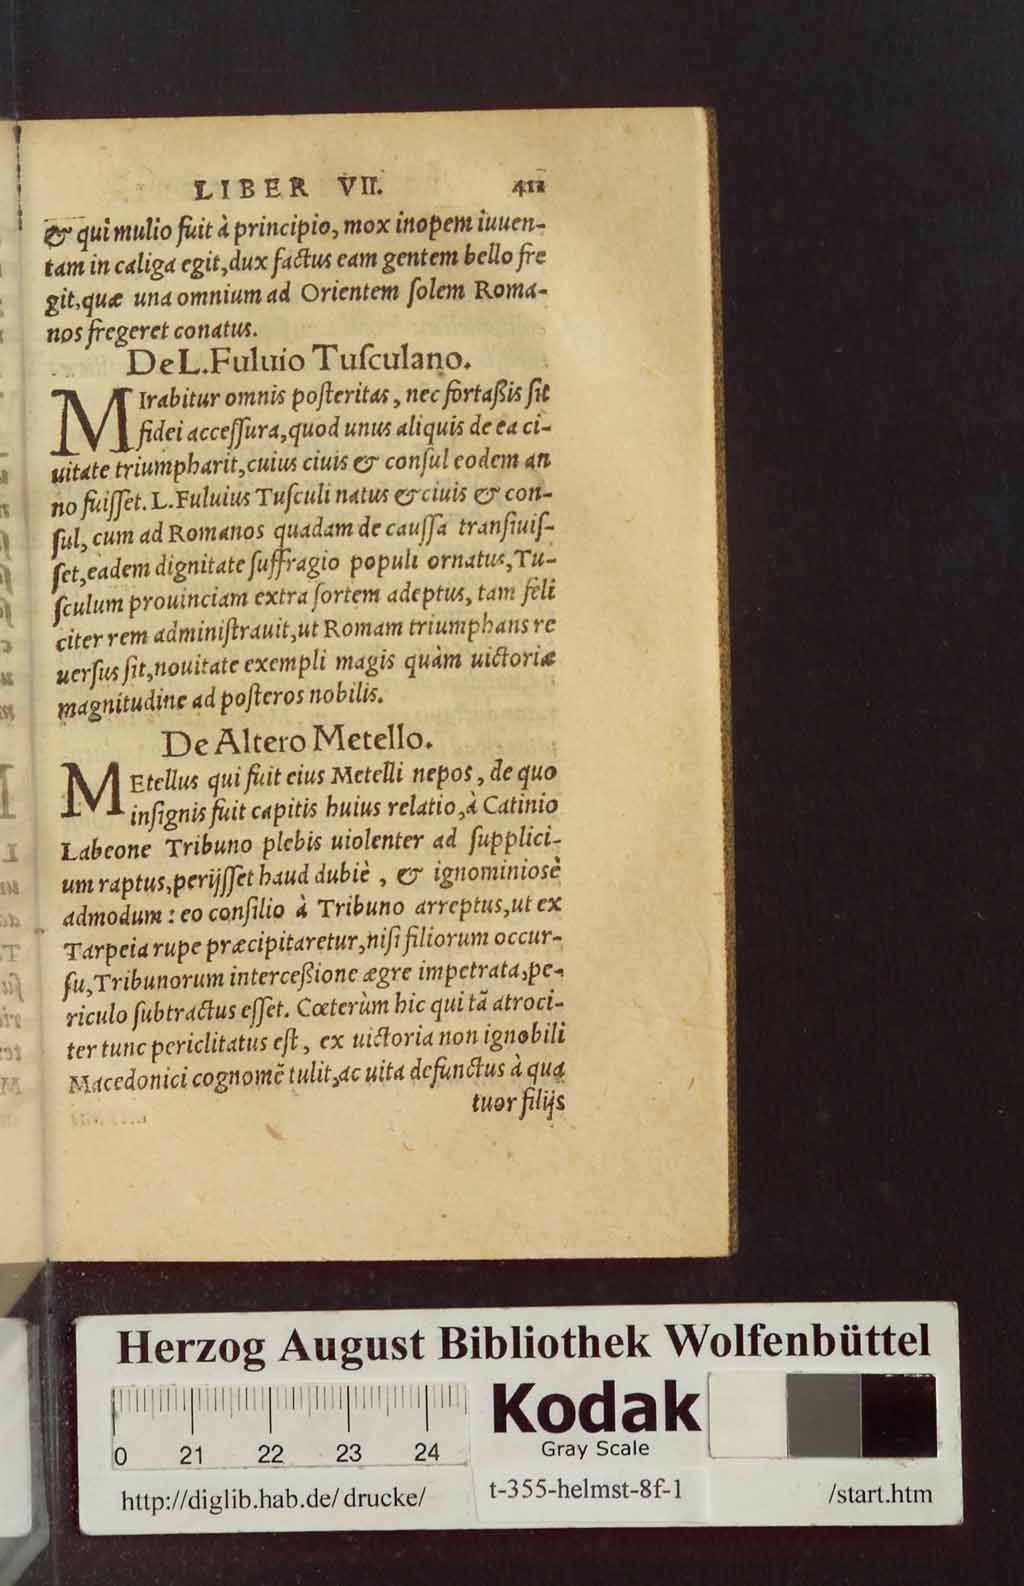 LIBER VII. 411
& qui mulio fuit à principio, mox inopem iuuen-
tam in caliga egit, dux factus eam gentem bello fre
git, quæ una omnium ad Orientem ſolem Roma-
nos fregeret conatus.
De L. Fuluio Tuſculano.
MIrabitur omnis poſteritas, nec fortaßis ſit
fidei acceſſura, quod unus aliquis de ea ci-
uitate triumpharit, cuius ciuis & conſul eodem an
no fuiſſet. L. Fuluius Tuſculi natus & ciuis & con-
ſul, cum ad Romanos quadam de cauſſa tranſiuiſ-
ſet, eadem dignitate ſuffragio populi ornatus, Tu-
ſculum prouinciam extra ſortem adeptus, tam feli
citer rem adminiſtrauit, ut Romam triumphans re
uerſus ſit, nouitate exempli magis quàm uictoriæ
magnitudine ad poſteros nobilis.
De Altero Metello.
MEtellus qui fuit eius Metelli nepos, de quo
inſignis fuit capitis huius relatio, à Catinio
Labeone Tribuno plebis uiolenter ad ſupplici-
um raptus, perijſſet haud dubiè, & ignominiosè
admodum: eo conſilio à Tribuno arreptus, ut ex
Tarpeia rupe præcipitaretur, niſi filiorum occur-
ſu, Tribunorum interceßione ægre impetrata, pe-
riculo ſubtractus eſſet. Cœterùm hic qui tā atroci-
ter tunc periclitatus eſt, ex uictoria non ignobili
Macedonici cognomē tulit, ac uita defunctus à qua
tuor filijs
Herzog August Bibliothek Wolfenbüttel
Kodak
Gray Scale
0 21 22 23 24
http://diglib.hab.de/drucke/ t-355-helmst-8f-1 /start.htm